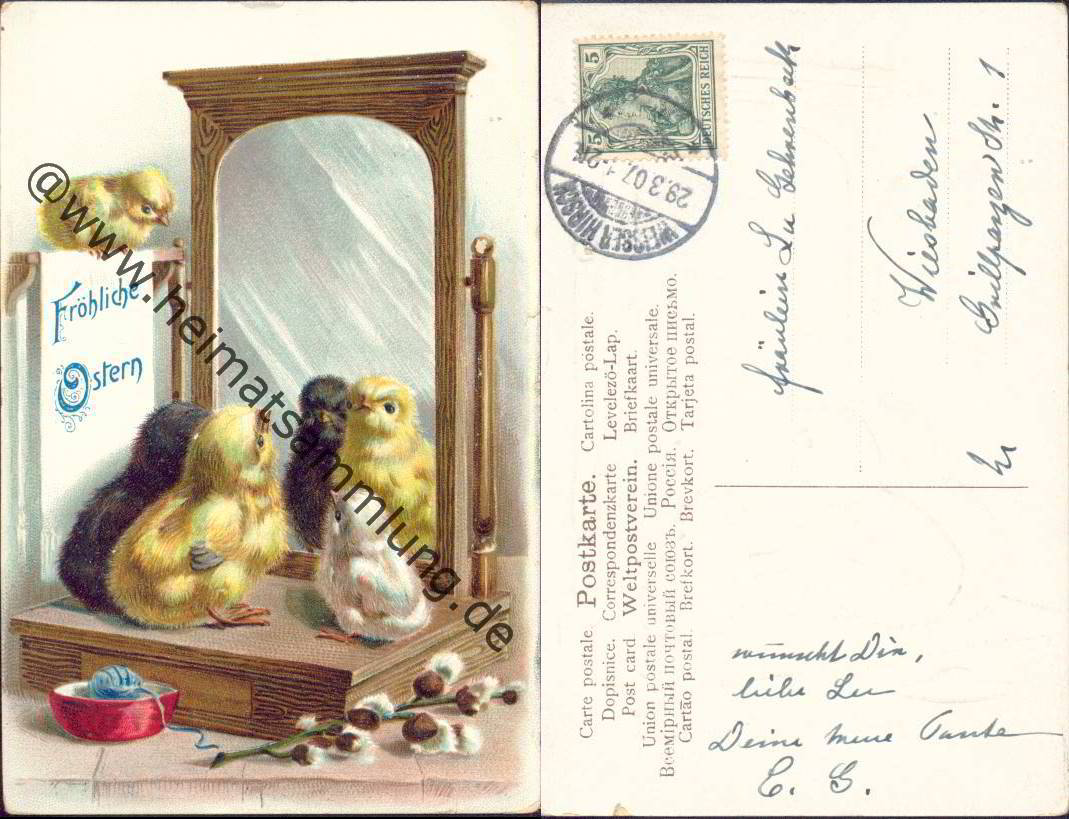 Fröhliche
Ostern
@www.heimatsammlung.de
5 5
DEUTSCHES REICH
WEISSER HIRSCH
29.3.07. 1-2N
Carte postale Postkarte. Cartolina postale.
Dopisnice. Correspondenzkarte Levelező-Lap.
Post card Weltpostverein. Briefkaart.
Union postale universelle Unione postale universale.
Всемірный почтовый союзъ. Россія. Открытое письмо.
Cartão postal. Brefkort. Brevkort. Tarjeta postal.
Fräulein Lu
Wiesbaden
Grillparzerstr. 1
wünscht Dir,
liebe Lu
Deine Tante
E. G.